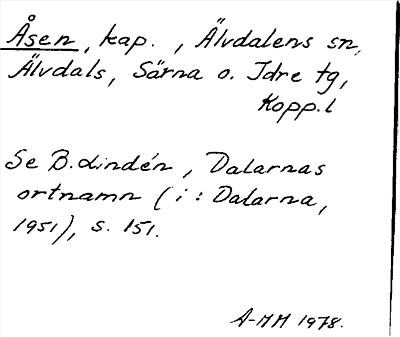 Åsen, kap. , Älvdalens sn,
Älvdals, Särna o. Idre tg,
Kopp.l
Se B. Lindén, Dalarnas
ortnamn (i: Dalarna,
1951), s. 151.
A-MM 1978.